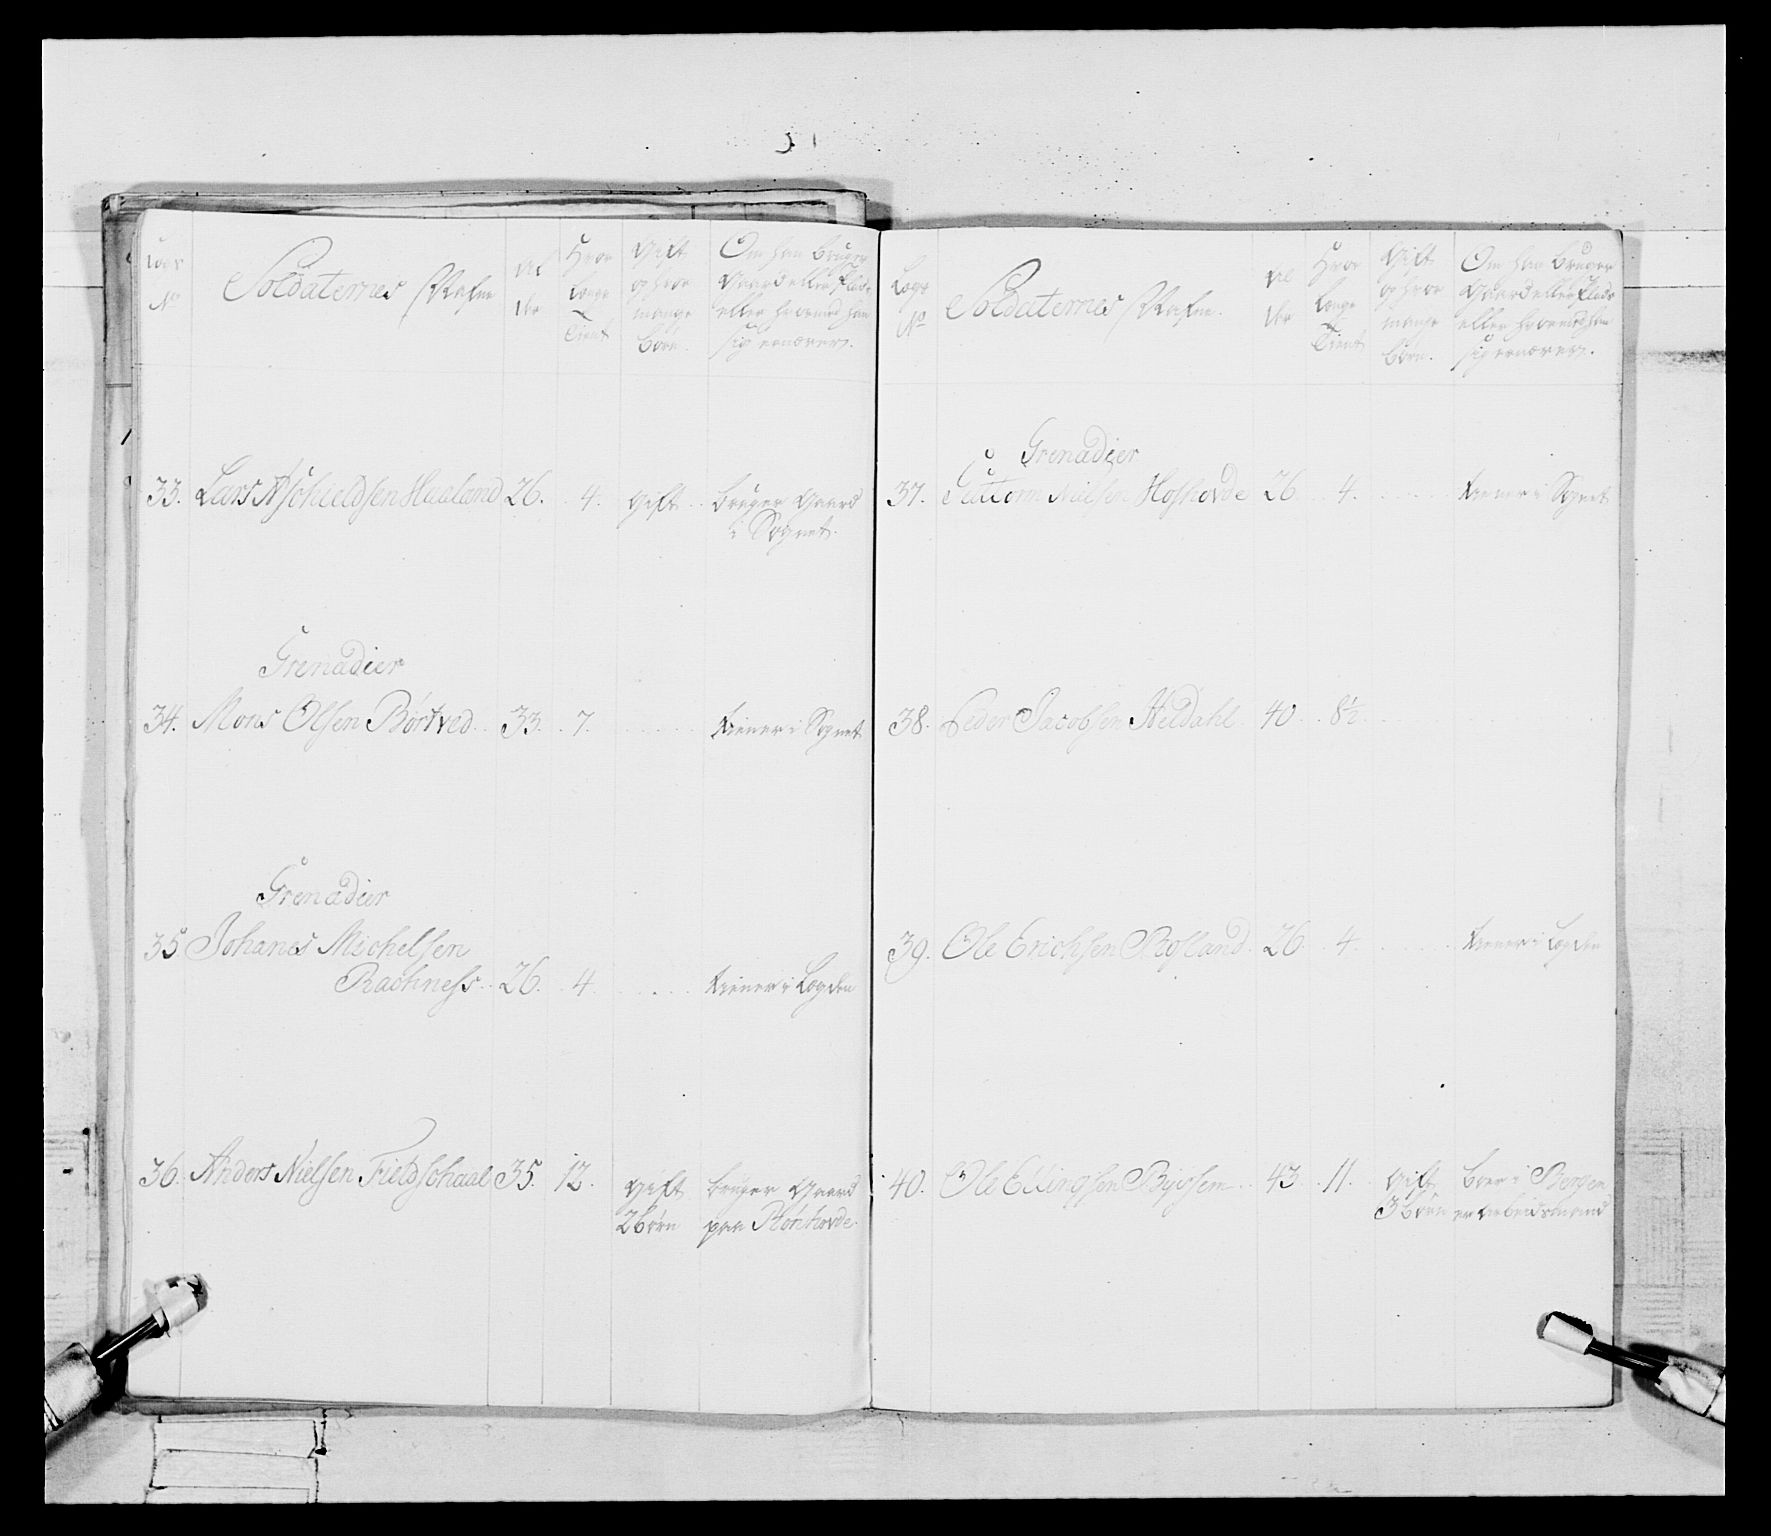 Lægs No
Soldaternes Nafne
Al der
Hvor længe Tient
Gift og hvor mange Børn.
Om han bruger Gaard eller Plads eller hvormed han sig ernærer.
33. Lars Aschieldsen Haaland 26. 4. Gift bruger Gaard
i Sognet.
Grenadier
34. Mons Olsen Børtved 33. 7. tiener i Sognet
Grenadier
35. Johanes Michelsen
Rachness 26. 4. tiener i Lægden
36. Anders Nielsen Fieldschaal 35. 12. Gift bruger Gaard
2 Børn paa
Lægs No
Soldaternes Nafne.
Al der
Hvor længe Tient
Gift og hvor mange Børn.
Om han bruger Gaard eller Plads eller hvormed han sig ernærer.
Grenadier
37. Guttorm Nielsen Hofhovde 26 4. tiener i Sognet
38. Peder Jacobsen Heldahl 40 8½
39. Ole Erichsen Rofland 26 4. tiener i Lægden
40. Ole Ellingsen 43 11. Gift boer i Bergen
3 børn er Arbeidsmand